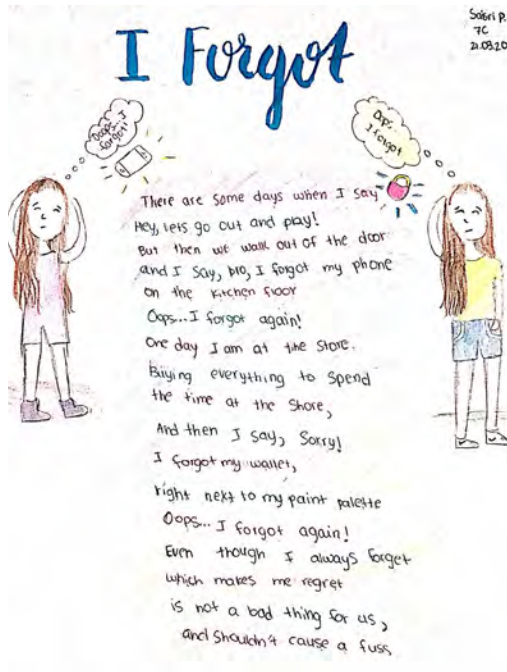 Saisri P.
7C
21.03.20
I Forgot
Oops... I
forgot!
Oops...
I forgot
There are some days when I say
Hey, lets go out and play!
But then we walk out of the door
and I say, bro, I forgot my phone
on the kitchen floor
Oops... I forgot again!
One day I am at the store.
Buying everything to spend
the time at the shore,
And then I say, Sorry!
I forgot my wallet,
right next to my paint palette
Oops... I forgot again!
Even though I always forget
which makes me regret
is not a bad thing for us,
and shouldn't cause a fuss